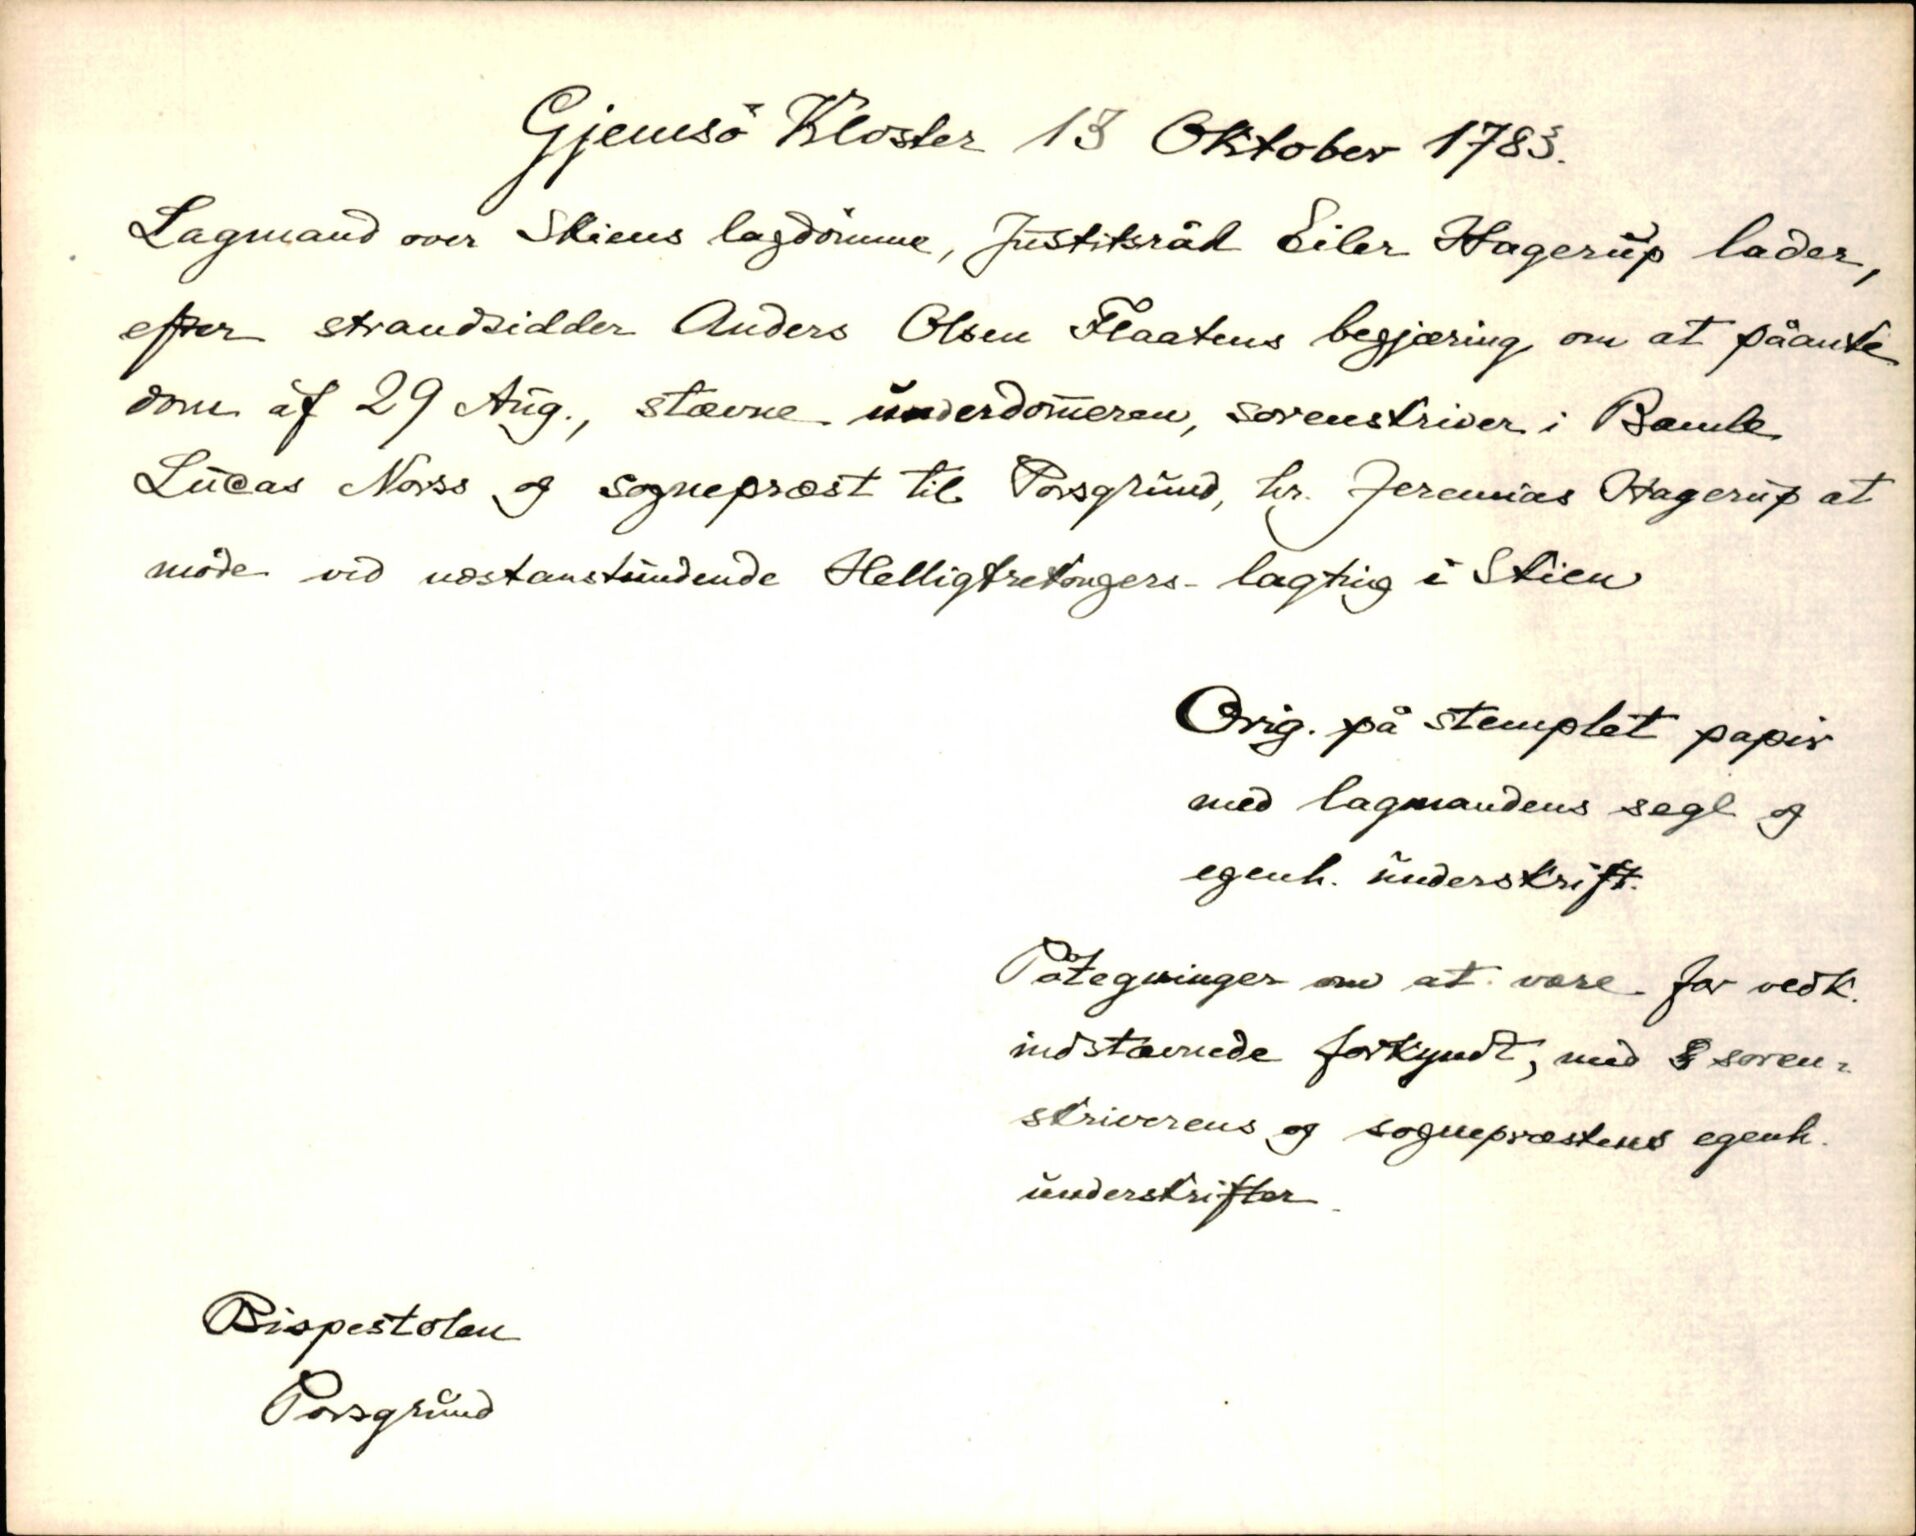 Gjemsö Kloster 13 Oktober 1783.
Lagmand over Skiens lagdömme, Justitsråd Eiler Hagerup lader,
efter strandsidder Anders Olsen Flaatens begjæring om at påanke
dom af 29 Aug., stævne underdommeren, sorenskriver i Bamle
Lucas Norss og sognepræst til Porsgrund, hr. Jeremias Hagerup at
möde ved næstanstundende Helligtrekongers-lagting i Skien
Orig. på stemplet papir
med lagmandens segl og
egenh. underskrift.
Påtegninger om at være for vedk.
indstævnede forkyndt, med soren-
skriverens og sognepræstens egenh.
underskrifter.
Bispestolen
Porsgrund